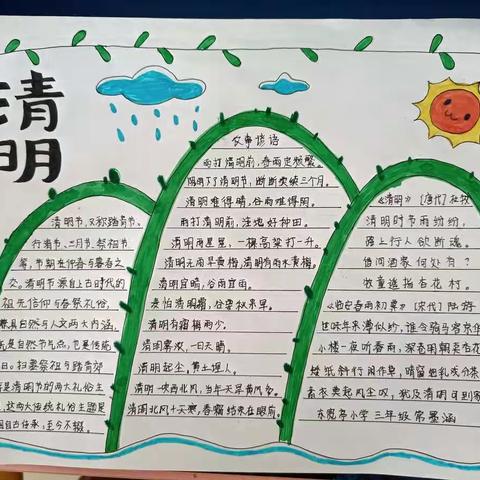 清明
清明节，又称踏青节、
行清节、三月节、祭祖节
等，节期在仲春与暮春之
交。清明节源自上古时代的
祖先信仰与春祭礼俗，
兼具自然与人文两大内涵，
是自然节气点，也是传统
日。扫墓祭祖与踏青郊
是清明节的两大礼俗主
，这两大传统礼俗主题
国自古传承，至今不辍。
农事谚语
雨打清明前，春雨定频繁。
阴雨下了清明节，断断续续三个月。
清明难得晴，谷雨难得阴。
雨打清明前，洼地好种田。
清明雨星星，一棵高粱打一升。
清明无雨旱黄梅，清明有雨水黄梅。
清明宜晴，谷雨宜雨。
麦怕清明霜，谷要秋来旱。
清明有霜梅雨少。
清明雾浓，一日天晴。
清明起尘，黄土埋人。
清明一吹西北风，当年天旱黄风多。
清明北风十天寒，春霜结束在眼前。
《清明》 [唐代] 杜牧
清明时节雨纷纷，
路上行人欲断魂。
借问酒家何处有？
牧童遥指杏花村。
《临安春雨初霁》 [宋代] 陆游
世味年来薄似纱，谁令骑马客京华
小楼一夜听春雨，深巷明朝卖杏花
矮纸斜行闲作草，晴窗细乳戏分茶
素衣莫起风尘叹，犹及清明可到家
小学 三年级 常墨涵